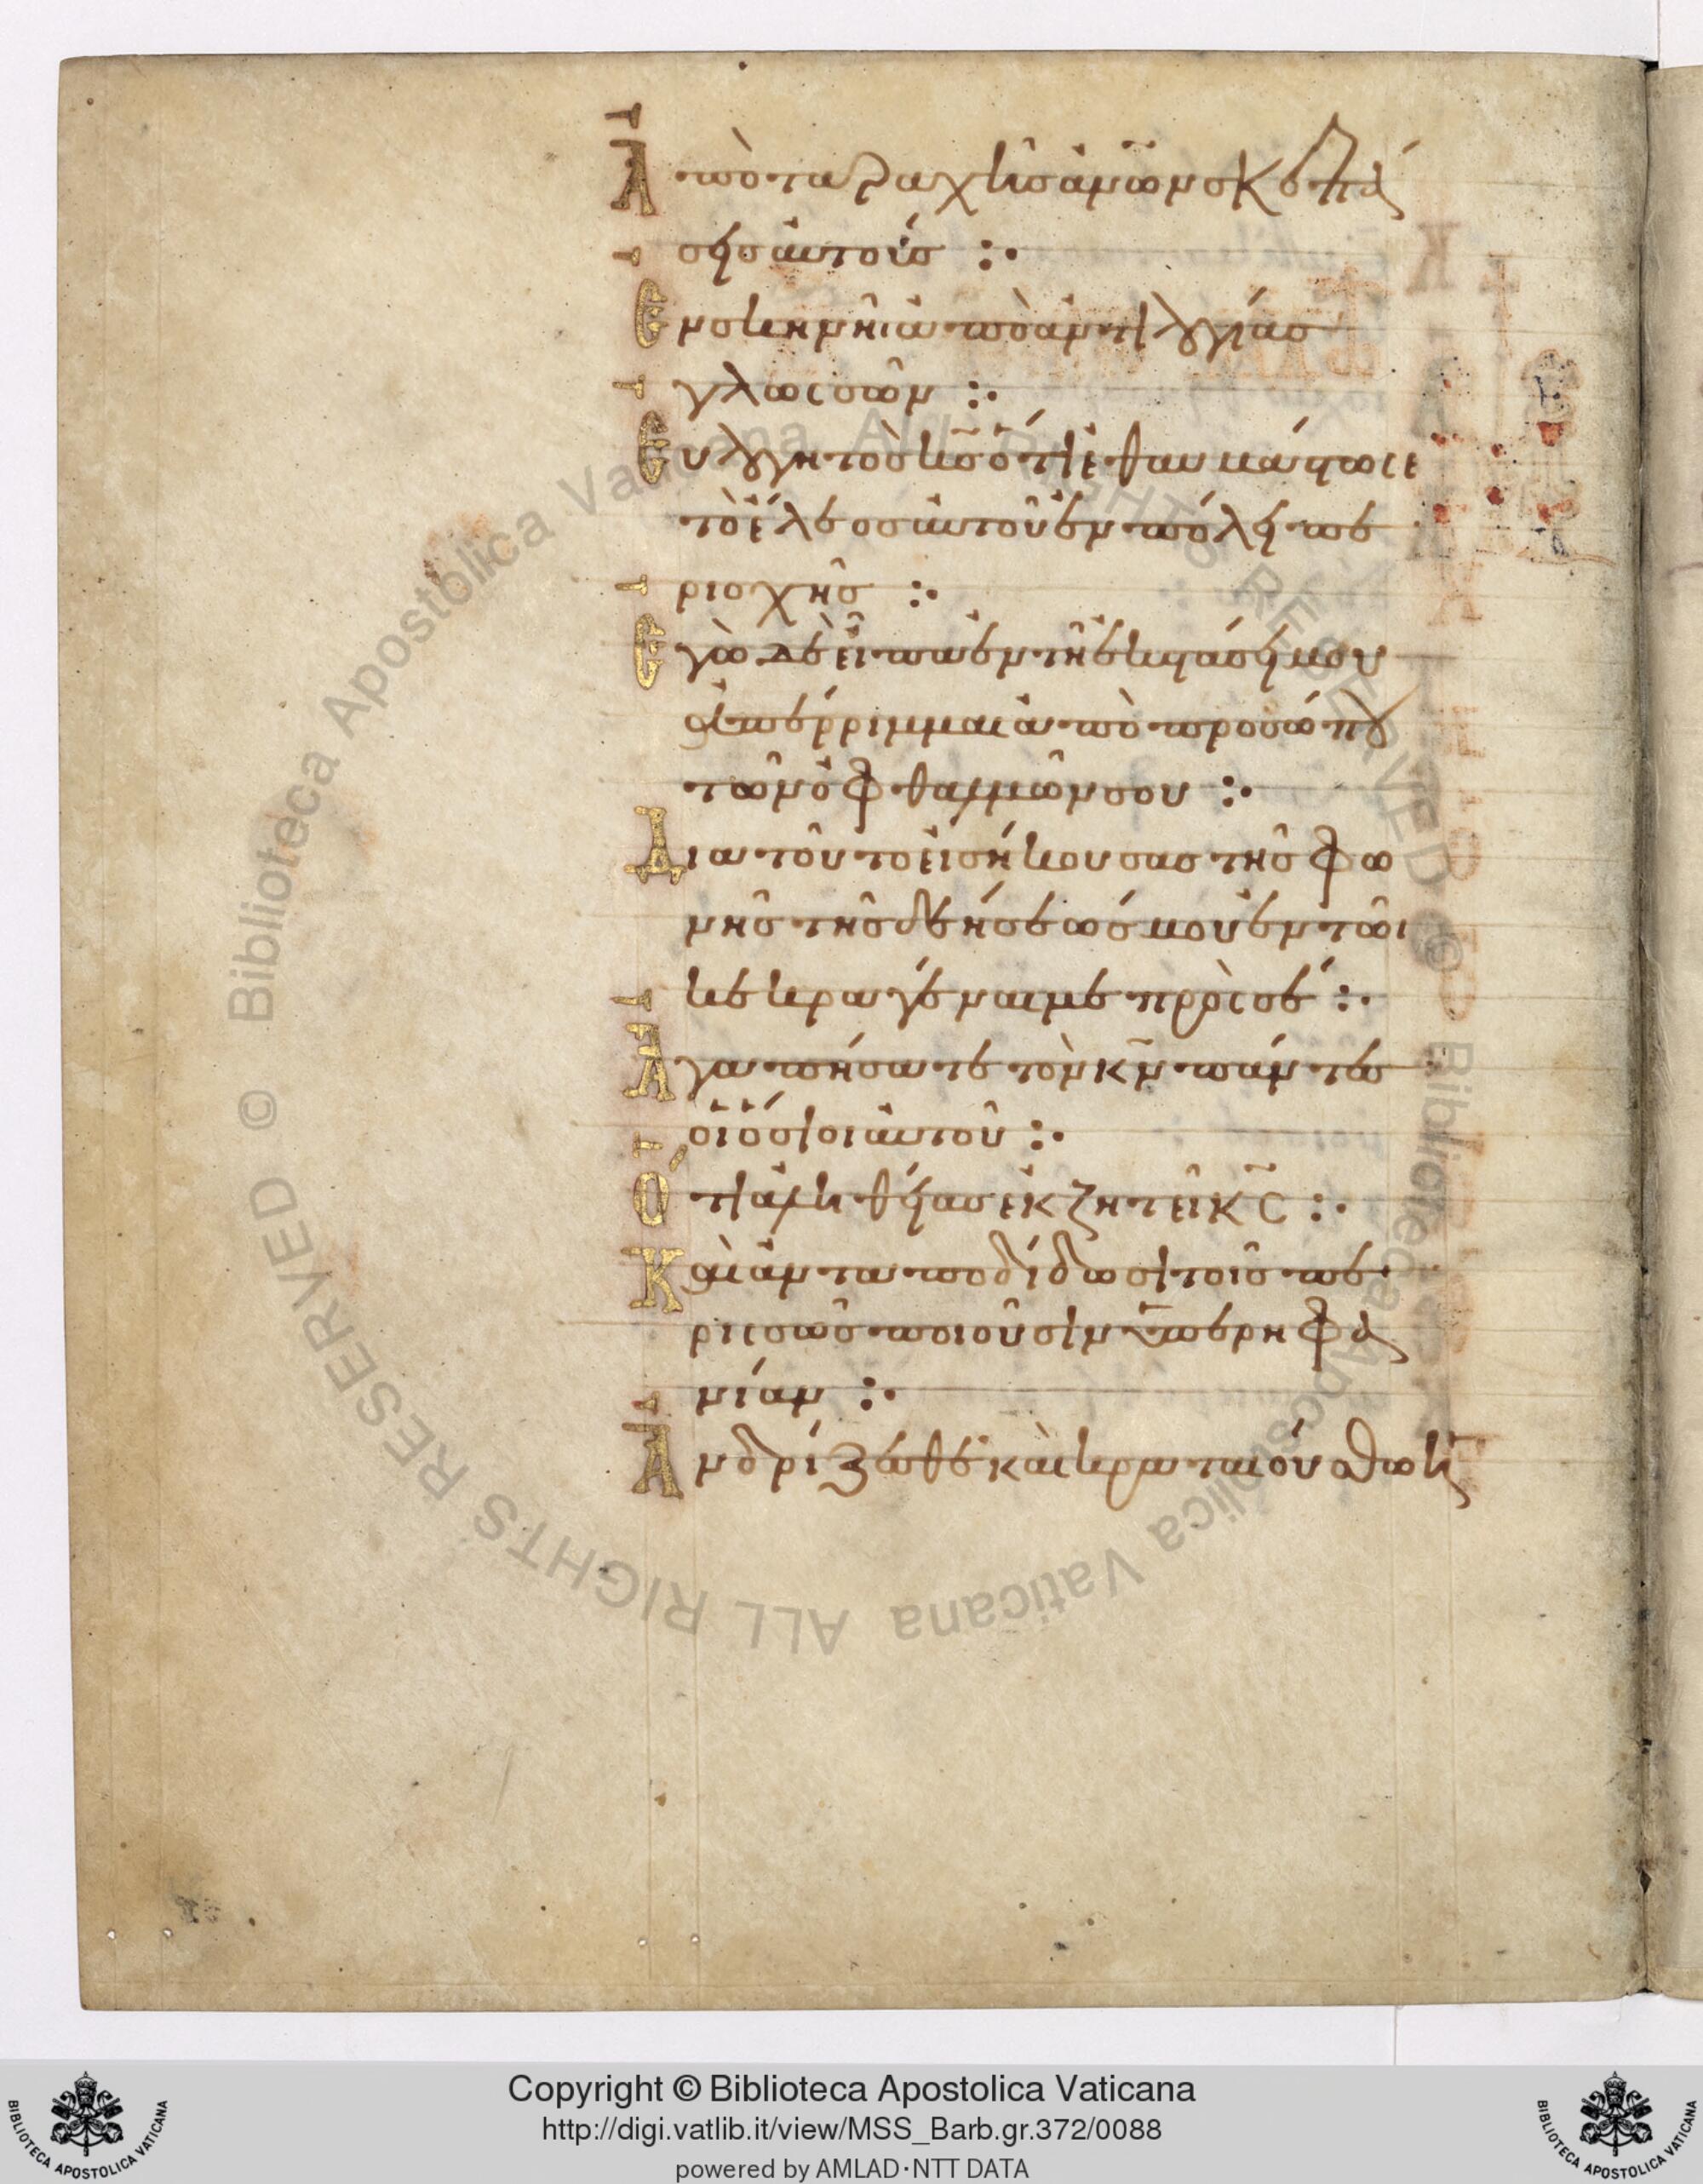 Ἀπὸ ταραχῆς ἀν̅ω̅ν σκεπά
σεις αὐτούς :·
ἐν σκηνῆι ἀπὸ ἀντιλογίας
γλωσσῶν :·
Εὐλογητὸς κ̅ς̅ ὅτι ἐθαυμάστωσε
τὸ ἔλεος αὐτοῦ ἐν πόλει πε
ριοχῆς :·
Ἐγὼ δὲ εἶπα ἐν τῆ ἐκστάσει μου
ἀπέρριμμαι ἀπὸ προσώπου
τῶν ὀφθαλμῶν σου :·
Διατοῦτο εἰσήκουσας τῆς φω
νῆς τῆς δεήσεώς μου ἐν τῶι
κεκραγέναι με πρὸς σέ :·
Ἀγαπήσατε τὸν κ̅ν̅ πάντες
οἱ ὅσιοι αὐτοῦ :·
Ὅτι ἀληθείας ἐκζητεῖ κ̅ς̅ :·
Καὶ ἀνταποδίδωσι τοῖς πε
ρισσῶς ποιοῦσιν ὑπερηφα
νίαν :·
Ἀνδρίζεσθε καὶ κραταιούσθω ἡ
Copyright © Biblioteca Apostolica Vaticana
http://digi.vatlib.it/view/MSS_Barb.gr.372/0088
powered by AMLAD·NTT DATA
BIBLIOTECA APOSTOLICA VATICANA
BIBLIOTECA APOSTOLICA VATICANA
© Biblioteca Apostolica Vaticana ALL RIGHTS RESERVED
© Biblioteca Apostolica Vaticana ALL RIGHTS RESERVED